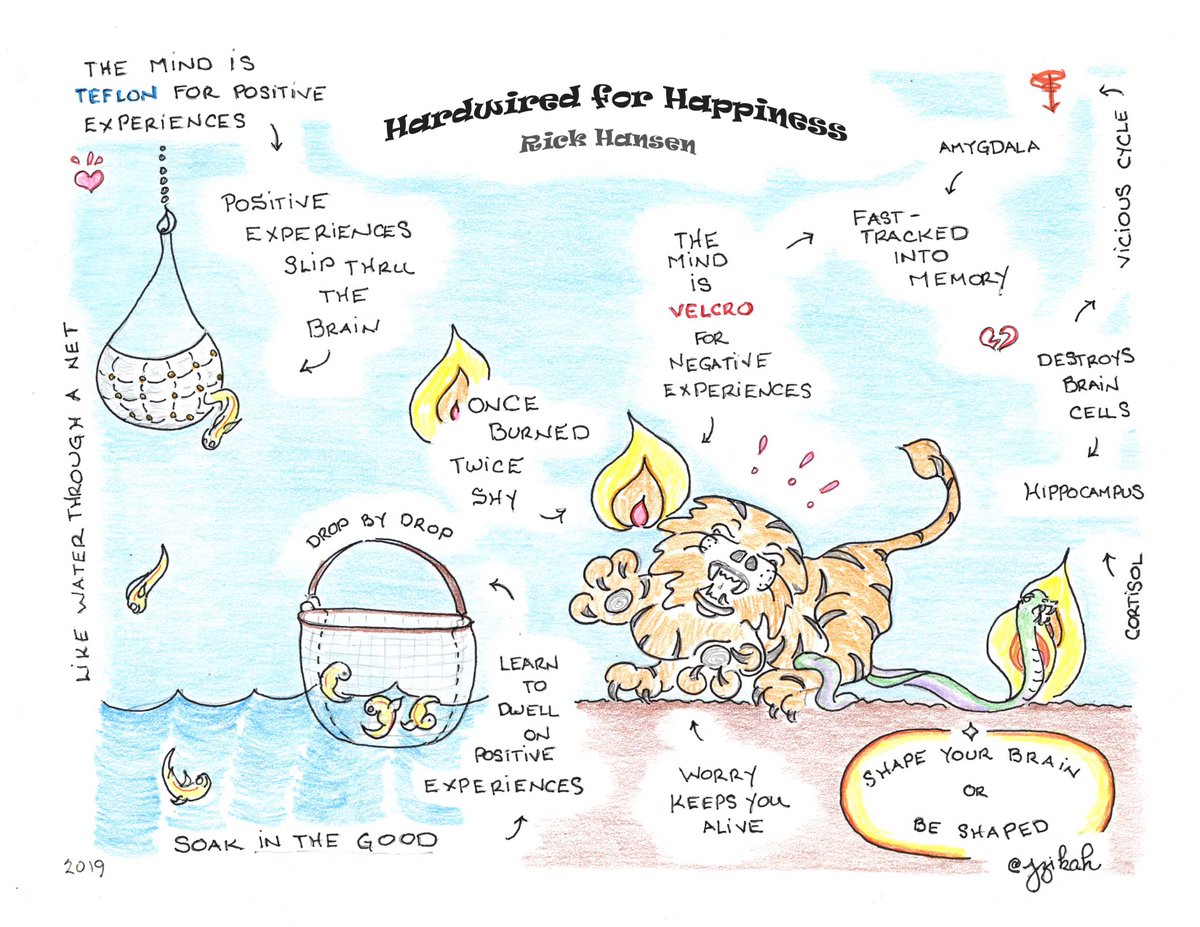 Hardwired for Happiness
Rick Hansen
THE MIND IS
TEFLON FOR POSITIVE
EXPERIENCES
POSITIVE
EXPERIENCES
SLIP THRU
THE
BRAIN
LIKE WATER THROUGH A NET
ONCE
BURNED
TWICE
SHY
THE
MIND
IS
VELCRO
FOR
NEGATIVE
EXPERIENCES
AMYGDALA
FAST-
TRACKED
INTO
MEMORY
VICIOUS CYCLE
DESTROYS
BRAIN
CELLS
HIPPOCAMPUS
CORTISOL
DROP BY DROP
LEARN
TO
DWELL
ON
POSITIVE
EXPERIENCES
SOAK IN THE GOOD
WORRY
KEEPS YOU
ALIVE
SHAPE YOUR BRAIN
OR
BE SHAPED
2019